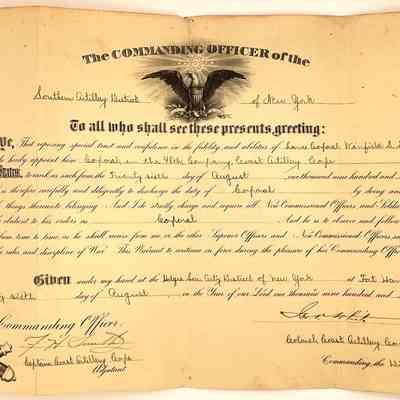 The COMMANDING OFFICER of the
Southern Artillery District of New York
To all who shall see these presents, greeting:
Ye, That reposing special trust and confidence in the fidelity and abilities of Lance Corporal
do hereby appoint him Corporal in the 48th Company, Coast Artillery Corps
States, to rank as such from the Twenty sixth day of August one thousand nine hundred and
is therefore carefully and diligently to discharge the duty of Corporal by doing and
things thereunto belonging. And I do strictly charge and require all Non-Commissioned Officers and Soldiers
obedient to his orders as Corporal And he is to observe and follow
from time to time, as he shall receive from me or other Superior Officers and Non-Commissioned Officers
rules and discipline of War. This Warrant to continue in force during the pleasure of his Commanding Officer
Given under my hand at the District of New York at Fort Han
sixth day of August, in the Year of our Lord one thousand nine hundred and
Commanding Officer.
Captain Coast Artillery Corps
Colonel Coast Artillery Cor
Adjutant
Commanding the